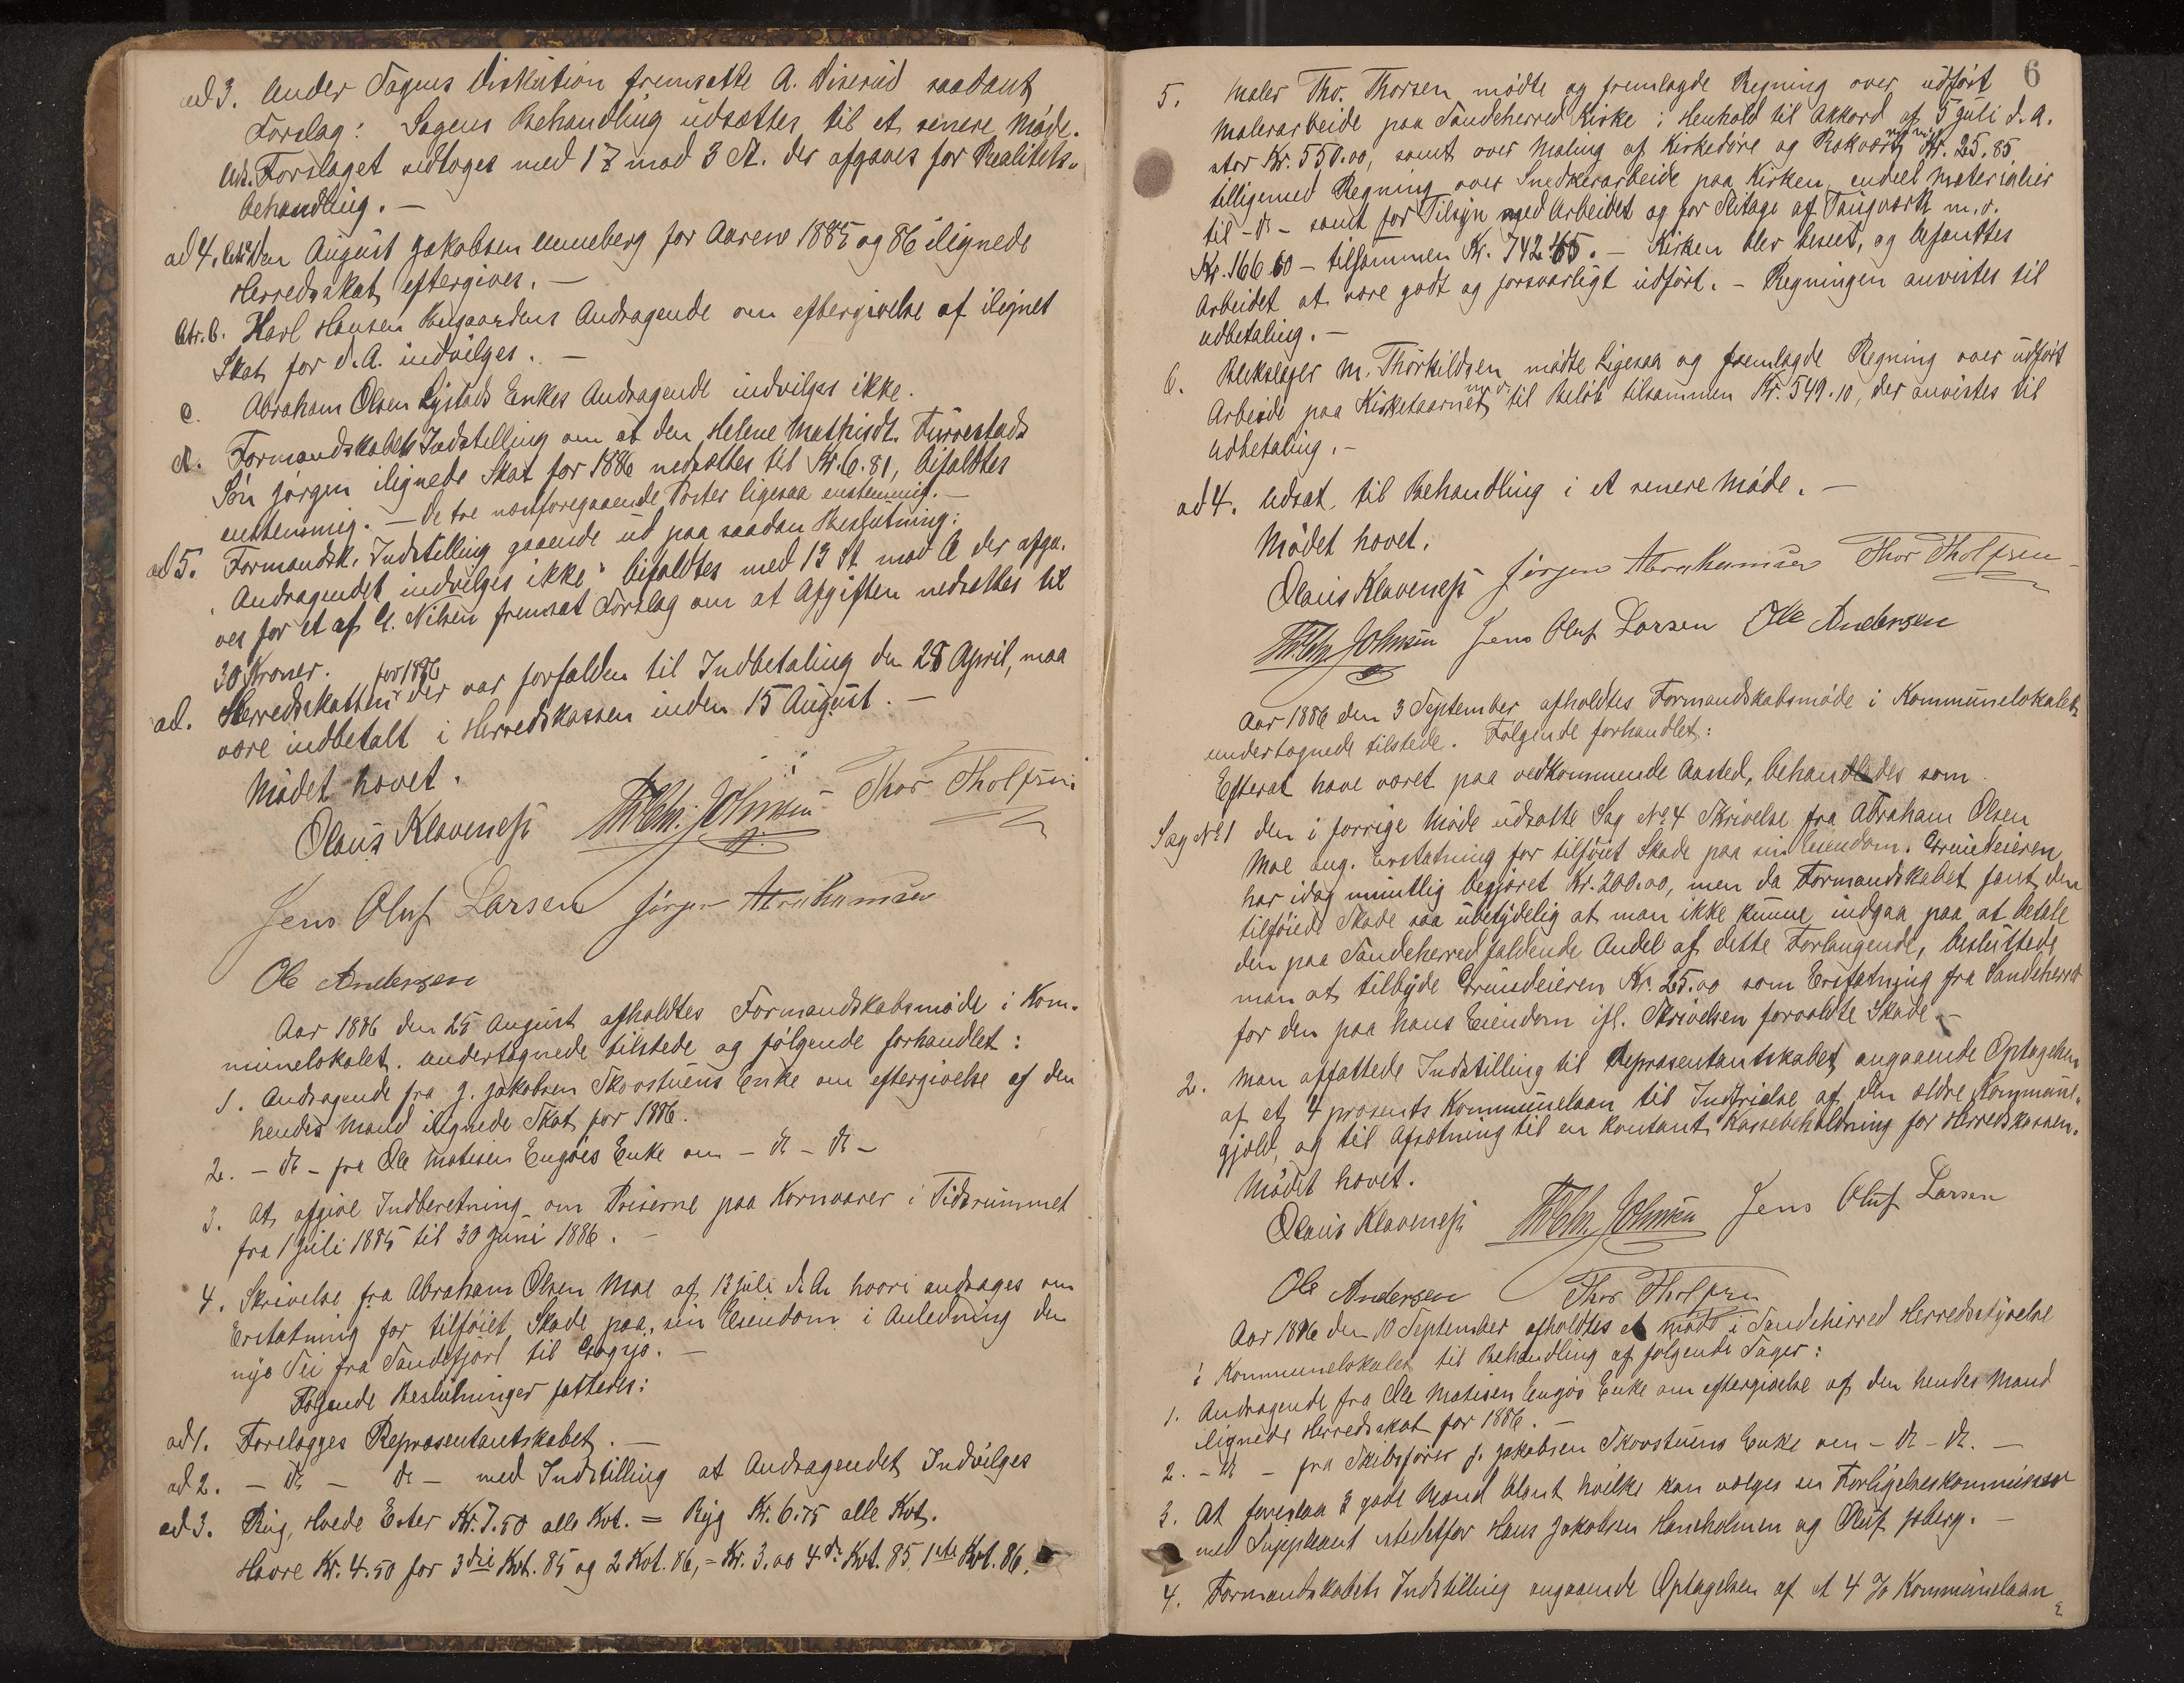 ad 3. Under Sagens Diskution fremsatte A. Viserud saadant
Forslag: Sagens Behandling udsættes til et senere Møde.
Forslaget vedtoges med 17 mod 3 St. der afgaves for Realitets-
behandling. —
ad 4. Den August Jakobsen Unneberg for Aarene 1885 og 86 ilignede
Herredsskat eftergives. —
Litr. b. Karl Hansen Bugaardens Andragende om eftergivelse af ilignet
Skat for d. A. indvilges. —
c. Abraham Olsen Enkes Andragende indvilges ikke.
d. Formandskabets Indstilling om at den Helene Mathisdt. Furrestads
Søn Jørgen ilignede Skat for 1886 nedsættes til Kr. 6.81, bifaldtes
enstemmig. — De tre næstforegaaende Poster ligesaa enstemmig. —
ad 5. Formandsk. Indstilling gaaende ud paa saadan Beslutning:
"Andragendet indvilges ikke" bifaldtes med 13 St mod der afga-
ves for et af C. Nilsen fremsat Forslag om at Afgiften nedsættes til
30 Kroner.
ad. Herredsskatten for 1886 der var forfalden til Indbetaling den 28 April, maa
være indbetalt i Herredskassen inden 15 August. —
Mødet hævet.
Olaus Klaveness Th. Chr. Johnsen Thor Tholfsen
Jens Oluf Larsen Jørgen Abrahamsen
Ole Andersen
Aar 1886 den 25 August afholdtes Formandskabsmøde i Kom-
munelokalet. undertegnede tilstede og følgende forhandlet:
1. Andragende fra J. Jakobsen Skovstuens Enke om eftergivelse af den
hendes Mand ilignede Skat for 1886.
2. — do — fra Ole Matisen Engøes Enke om — do — do —
3. At afgive Indberetning om Priserne paa Kornvarer i Tidsrummet
fra 1 Juli 1885 til 30 Juni 1886. —
4. Skrivelse fra Abraham Olsen Moe af 13 Juli d. A. hvori andrages om
Erstatning for tilføiet Skade paa sin Eiendom i Anledning den
nye Vei fra Sandefjord til Gogsjø. —
Følgende Beslutninger fattedes:
ad 1. Forelægges Repræsentantskabet. —
ad 2. — do — do — med Indstilling at Andragendet Indvilges
ad 3. Rug, Hvede Erter Kr. 7.50 alle Kvt. = Byg Kr. 6.75 alle Kvt.
Havre Kr. 4.50 for 3die Kvt. 85 og 2 Kvt. 86, = Kr. 3.00 4de Kvt. 85 1ste Kvt. 86.
6
5. Maler Tho. Thorsen mødte og fremlagde Regning over udført
Malerarbeide paa Sandeherred Kirke i Henhold til Akkord af 5 Juli d. A.
stor Kr. 550.00, samt over Maling af Kirkedøre og Rækværk m. m. Kr. 25.85,
tilligemed Regning over Snedkerarbeide paa Kirken, endeel Materialier
til — do — samt for Tilsyn med Arbeidet og for Slitage af Taugværk m. v.
Kr. 166.60 — tilsammen Kr. 742.45. — Kirken blev beseet, og befandtes
Arbeidet at være godt og forsvarligt udført. — Regningen anvistes til
udbetaling. —
6. Blikslager M. Thorkildsen mødte Ligesaa og fremlagde Regning over udført
Arbeide paa Kirketaarnet m. v. til Beløb tilsammen Kr. 549.10, der anvistes til
udbetaling. —
ad 4. Udsat til Behandling i et senere Møde. —
Mødet hævet.
Olaus Klaveness Jørgen Abrahamsen Thor Tholfsen
Th. Chr. Johnsen Jens Oluf Larsen Ole Andersen
Aar 1886 den 3 September afholdtes Formandskabsmøde i Kommunelokalet
undertegnede tilstede. Følgende forhandlet:
Efterat have været paa vedkommende Aasted, behandledes som
Sag No 1 den i forrige Møde udsatte Sag No 4 Skrivelse fra Abraham Olsen
Moe ang. Erstatning for tilføiet Skade paa sin Eiendom. Grundeieren
har idag mundtlig begjæret Kr. 200.00, men da Formandskabet fandt den
tilføiede Skade saa ubetydelig at man ikke kunne indgaa paa at betale
den paa Sandeherred faldende Andel af dette Forlangende, besluttede
man at tilbyde Grundeieren Kr. 25.00 som Erstatning fra Sandeherred
for den paa hans Eiendom ifl. Skrivelsen forvoldte Skade. —
2. Man affattede Indstilling til Repræsentantskabet angaaende Optagelsen
af et 4 prosents Kommunelaan til Indfrielse af den ældre Kommune-
gjæld, og til Afsætning til en Kontant Kassebeholdning for Herredskassen.
Mødet hævet.
Olaus Klaveness Th. Chr. Johnsen Jens Oluf Larsen
Ole Andersen Thor Tholfsen
Aar 1886 den 10 September afholdtes et møde i Sandeherred Herredsstyrelse
i Kommunelokalet til Behandling af følgende Sager:
1. Andragende fra Ole Matisen Engøs Enke om eftergivelse af den hendes Mand
ilignede Herredsskat for 1886. —
2. — do — fra Skibsfører J. Jakobsen Skovstuens Enke om — do — do. —
3. At foreslaa 3 gode Mænd blant hvilke kan vælges en Forligelseskommissær
med Suppleant istedetfor Hans Jakobsen Haneholmen og Oluf Joberg. —
4. Formandskabets Indstilling angaaende Optagelsen af et 4 % Kommunelaan